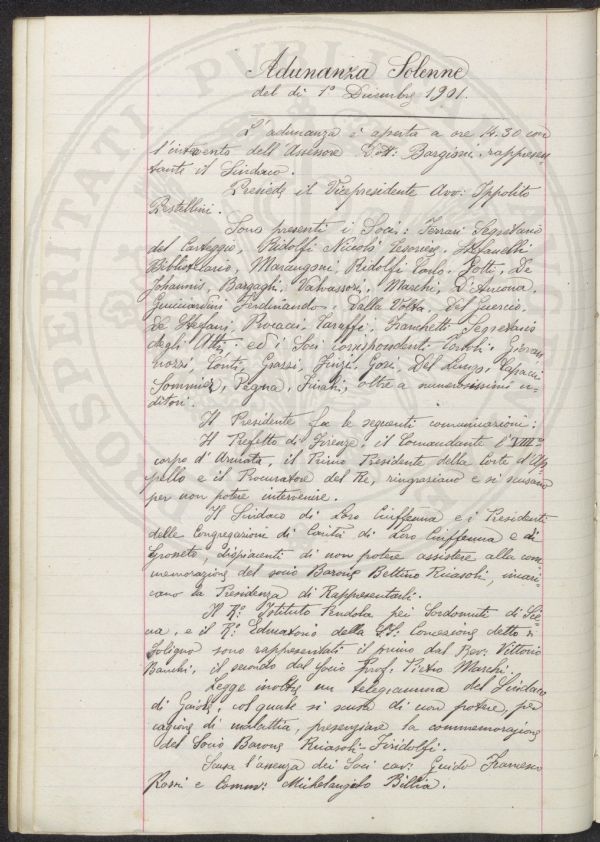 Adunanza Solenne
del dì 1° Dicembre 1901.
L'adunanza è aperta a ore 14.30 con
l'intervento dell'Assessore Dott: Bargioni, rappresen-
tante il Sindaco.
Presiede il Vicepresidente Avv: Ippolito
Pestellini.
Sono presenti i Soci: Ferrari Segretario
del Carteggio, Ridolfi Niccolò Tesoriere, Stefanelli
Bibliotecario, Marangoni, Ridolfi Carlo, Gotti, De
Johannis, Bargagli, Valvassori, Marchi, D'Ancona,
Guicciardini Ferdinando, Dalla Volta, Del Guercio,
De Stefani, Procacci, Caruffi, Franchetti Segretario
degli Atti; ed i Soci corrispondenti: Giovan-
nozzi, Conti, Grassi, Finzi, Gori, Del Lungo, Capacci
Sommier, Pegna, Funati, oltre a numerosissimi u-
ditori.
Il Presidente fa le seguenti comunicazioni:
Il Prefetto di Firenze, il Comandante l'VIII°
corpo d'Armata, il Primo Presidente della Corte d'Ap
pello e il Procuratore del Re, ringraziano e si scusano
per non potere intervenire.
Il Sindaco di Loro Ciuffenna e i Presidenti
delle Congregazioni di Carità di Loro Ciuffenna e di
Grosseto, dispiacenti di non potere assistere alla com
memorazione del socio Barone Bettino Ricasoli, incari-
cano la Presidenza di Rappresentarli.
Il R° Istituto Pendola pei Sordomuti di Sie-
na, e il R° Educatorio della SS: Concezione detto di
Foligno sono rappresentati il primo dal Rev: Vittorio
Banchi, il secondo dal Socio Prof: Pietro Marchi.
Legge inoltre un telegramma del Sindaco
di Gaiole, col quale si scusa di non potere, per
cagione di malattia, presenziare la commemorazione
del Socio Barone Ricasoli-Firidolfi.
Scusa l'assenza dei Soci cav: Guido Francesco
Rossi e Comm: Michelangelo Billia.
PROSPERITATI PVBLICAE AVGENDAE